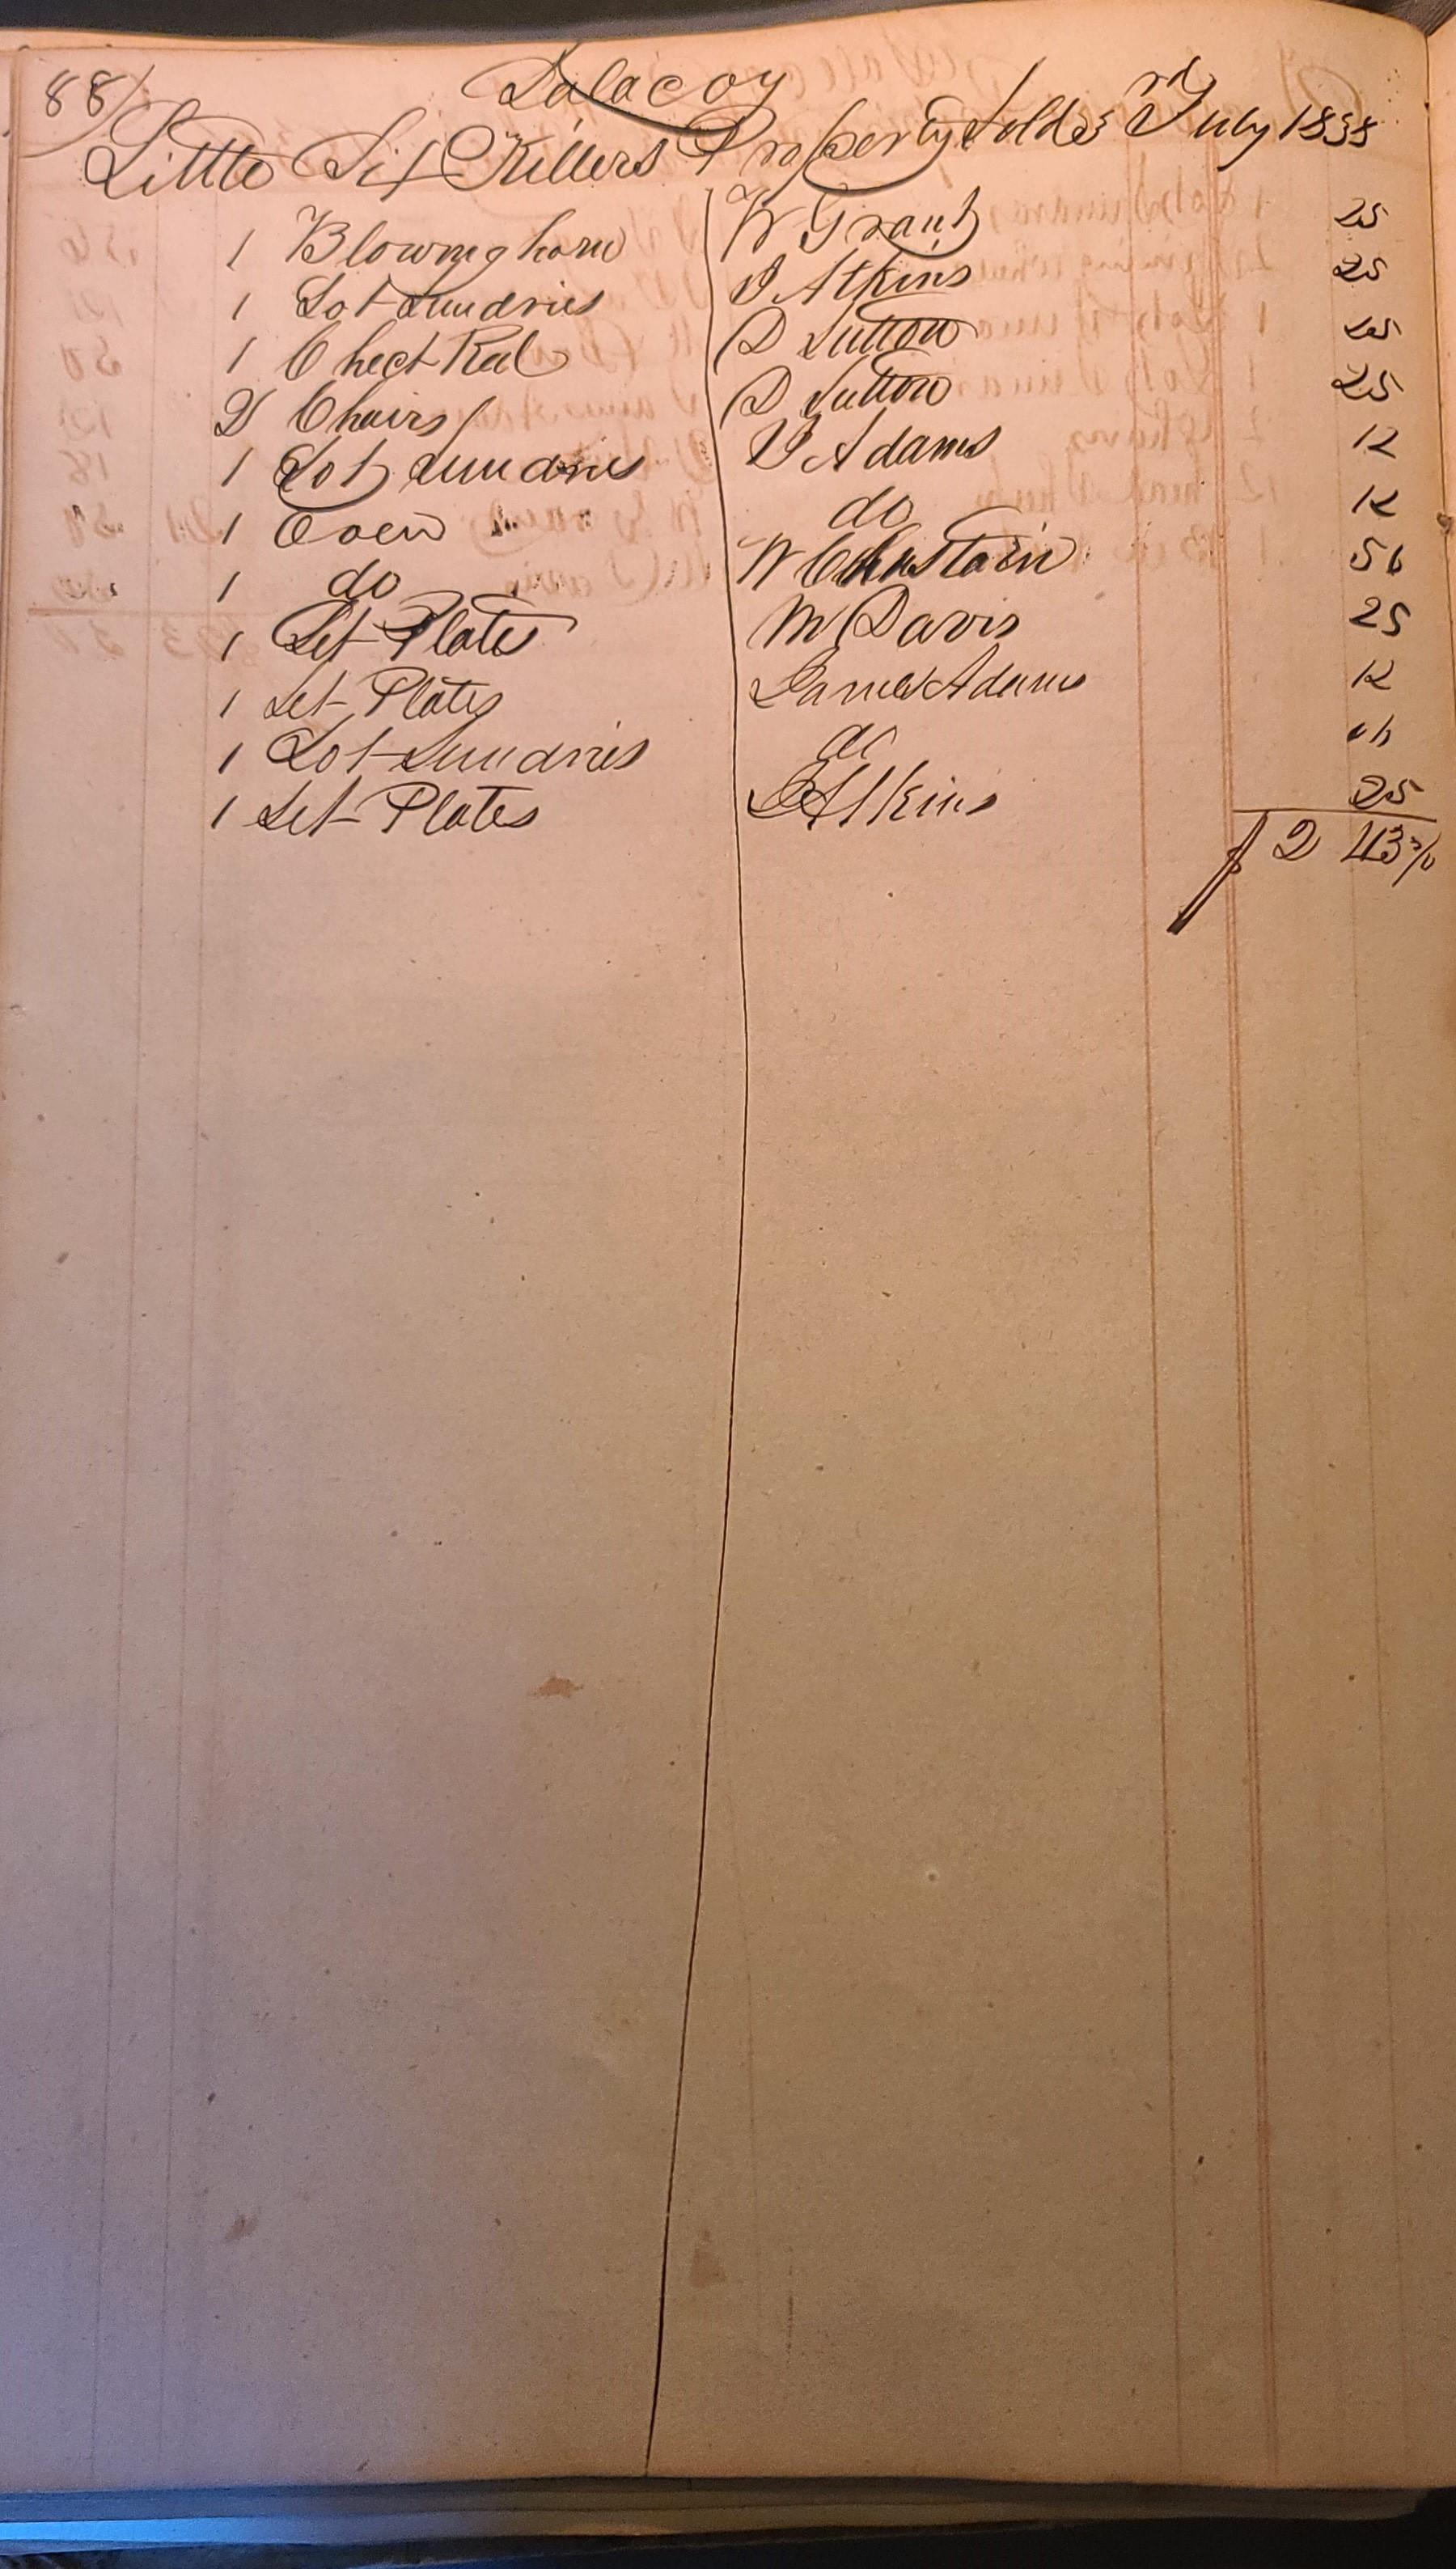 88/
Dalacoy
Little Six Killers Property Sold 3rd July 1838
1 Blowing horn W Grant 25
1 Lot Sundries J Atkins 25
1 D Sutton 25
2 Chairs D Sutton 25
1 Lot Sundries J Adams 12
1 Oven do 12
1 do W Chastain 56
1 Set Plates M Davis 25
1 Set Plates James Adams 12
1 Lot Sundries do
1 Set Plates J Atkins 25
$2 43